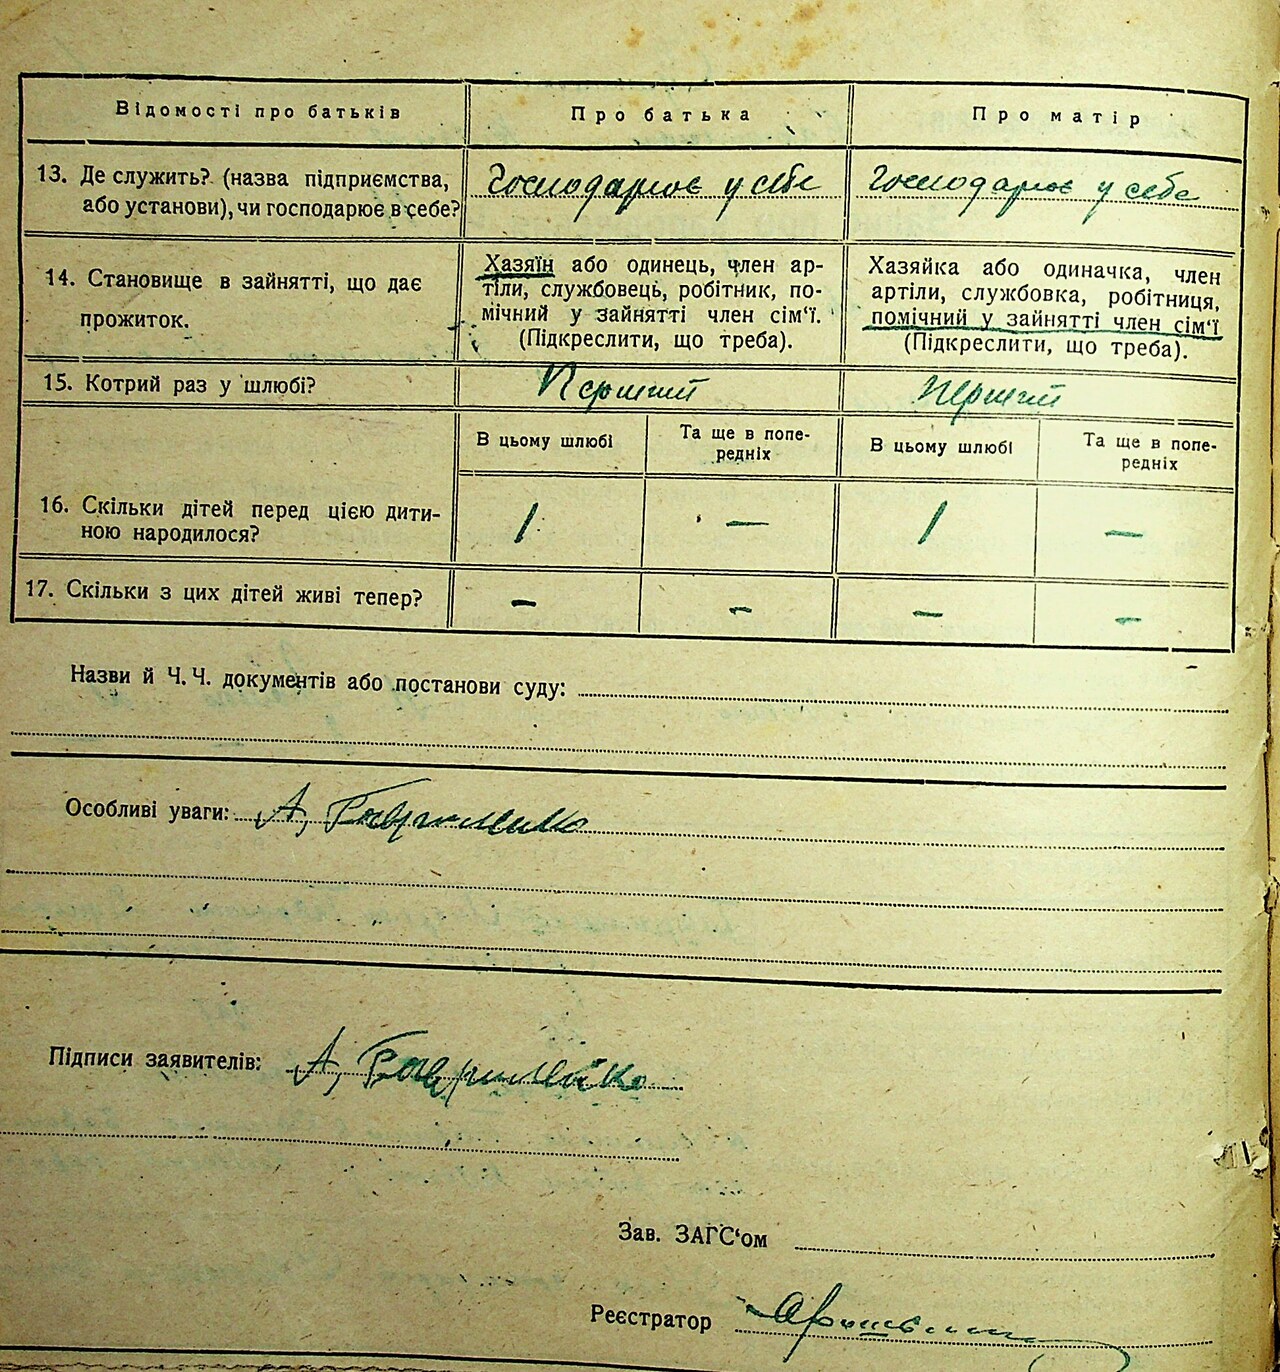 Відомості про батьків
Про батька
Про матір
13. Де служить? (назва підприємства,
або установи), чи господарює в себе?
Господарює у себе
Господарює у себе
14. Становище в зайнятті, що дає
прожиток.
Хазяїн або одинець, член ар-
тіли, службовець, робітник, по-
мічний у зайнятті член сім'ї.
(Підкреслити, що треба).
Хазяйка або одиначка, член
артіли, службовка, робітниця,
помічний у зайнятті член сім'ї
(Підкреслити, що треба).
15. Котрий раз у шлюбі?
Перший
Перший
В цьому шлюбі
Та ще в попе-
редніх
В цьому шлюбі
Та ще в попе-
редніх
16. Скільки дітей перед цією дити-
ною народилося?
1
—
1
—
17. Скільки з цих дітей живі тепер?
—
—
—
—
Назви й Ч. Ч. документів або постанови суду:
Особливі уваги: А,
Підписи заявителів: А, Гавриленко
Зав. ЗАГС'ом
Реєстратор